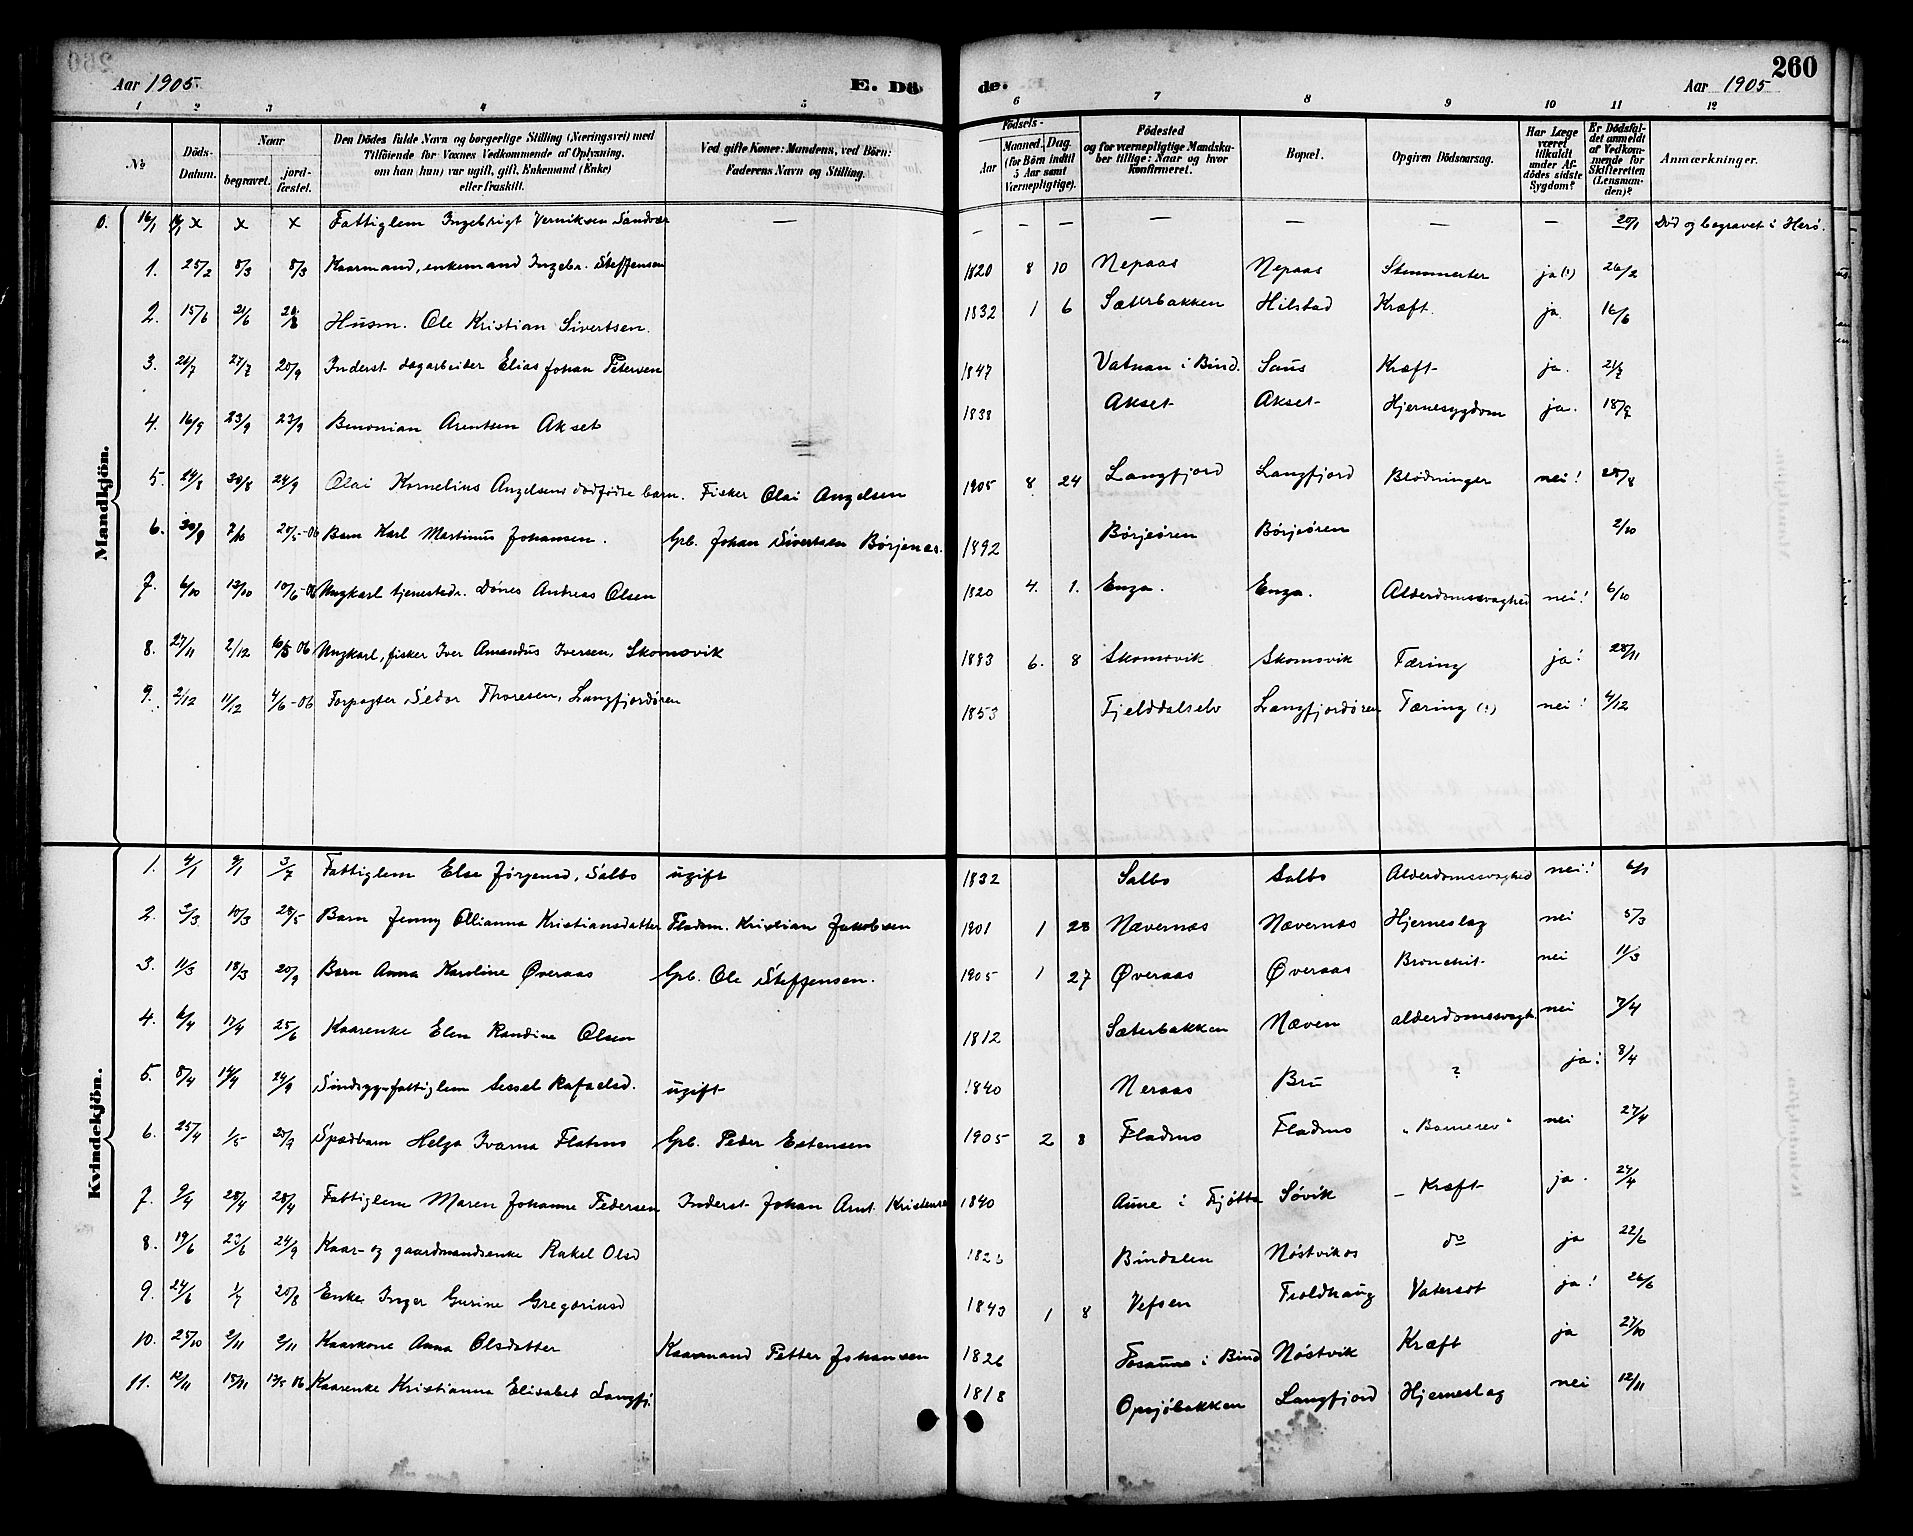 260
Aar 1905.
E. Dö
de.
Aar 1905
1 2 3 4 5 6 7 8 9 10 11 12
№
Döds-Datum.
Naar
begravet.
jord-fæstet.
Den Dödes fulde Navn og borgerlige Stilling (Næringsvei) med
Tilföiende for Voxnes Vedkommende af Oplysning,
om han (hun) var ugift, gift, Enkemand (Enke)
eller fraskilt.
Ved gifte Koner: Mandens, ved Börn:
Faderens Navn og Stilling.
Födsels-
Aar
Maaned. Dag
(for Börn indtil
5 Aar samt
Værnepligtige).
Födested
og for værnepligtige Mandska-
ber tillige: Naar og hvor
konfirmeret.
Bopæl.
Opgiven Dödsaarsag.
Har Læge
været
tilkaldt
under Af-
dödes sidste
Sygdom?
Er Dödsfal-
det anmeldt
af Vedkom-
mende for
Skifteretten
(Lensman-
den)?
Anmærkninger.
Mandkjön.
0. 16/1 x x x Fattiglem Ingebrigt Verniksen Sandvær — — — — — — — — 20/1 Död og begravet i Herö.
1. 25/2 8/3 8/3 Kaarmand, enkemand Ingebr. Steffensen 1820 8 10 Nepaas Nepaas ja (!) 26/2
2. 15/6 21/6 Husm. Ole Kristian Sivertsen. 1832 1 6 Sæterbakken Hilstad Kræft. ja. 16/6
3. 21/7 27/7 20/9 Inderst dagarbeider Elias Johan Petersen 1847 Vatnan i Bind. Saus Kræft- ja. 21/7
4. 16/9 23/9 23/9 Benonian Arentsen Akset 1838 Akset Akset- Hjernesygdom ja. 18/9
5. 24/8 30/8 24/9 Olai Kornelius Angelsens dödfødte barn. Fisker Olai Angelsen 1905 8 24 Langfjord Langfjord Blödninger nei! 28/8
6. 30/9 7/10 20/5-06 Barn Karl Martinus Johansen. Grb. Johan Sivertsen 1892 Börjeören Börjeören 2/10
7. 6/10 12/10 10/6-06 Ungkarl tjenestedr. Dönes Andreas Olsen 1820 4. 1. Enga. Enga. Alderdomssvaghed nei! 6/10
8. 27/11 2/12 06 Ungkarl, fisker Iver Amandus Iversen, Skomovik 1883 6. 8 Skomovik Skomovik Tæring ja! 28/11
9. 2/12 11/12 4/6-06 Forpagter Sedor Thoresen, Langfjordören 1853 Fjelddalselv Langfjordören Tæring (!) nei! 4/12
Kvindekjön.
1. 4/1 9/1 3/7 Fattiglem Else Jörgensd, Salbo ugift 1832 Salbo Salbo Alderdomssvaghed nei! 6/1
2. 2/3 10/3 28/5 Barn Jenny Ollianna Kristiansdatter Pladsm. Kristian Jakobsen 1901 1 28 Nævernæs Nævernæs Hjerneslag nei 5/3
3. 11/3 18/3 20/9 Barn Anna Karoline Øveraas Grb. Ole Steffensen. 1905 1 27 Øveraas Øveraas Bronchit- nei 11/3
4. 6/4 17/4 25/6 Kaarenke Elen Randine Olsen 1812 Sæterbakken Næven alderdomssvagh. nei 7/4
5. 8/4 14/4 24/9 Sindssyg-fattiglem Sessel Rafaelsd. ugift 1840 Neraas Bru ? ja! 8/4
6. 25/4 1/5 20/9 Spædbarn Helga Ivarna Flatmo Grb. Peder Estensen 1905 2 8 Fladmo Fladmo nei 27/4
7. 9/4 28/4 28/4 Fattiglem Maren Johanne Pedersen Inderst Johan Arnt Kristensen 1840 Aune i Tjötta Sövik - Kræft- ja. 24/4
8. 19/6 23/6 24/9 Kaar- og gaardmandsenke Rakel Olsd Bindalen Nöstvikos do ja 22/6
9. 24/6 1/7 20/8 Enke Inger Gurine Gregoriusd 1843 1 8 Vefsen Troldhaug Vatersot ja! 26/6
10. 25/10 2/11 2/11 Kaarkone Anna Olsdatter Kaarmand Petter Johansen 1826 Fosaune i Bind Nöstvik Kræft ja 27/10
11. 12/11 15/11 06 Kaarenke Kristianna Elisabet Langfj. 1818 Opsjöbakken Langfjord Hjerneslag nei 12/11